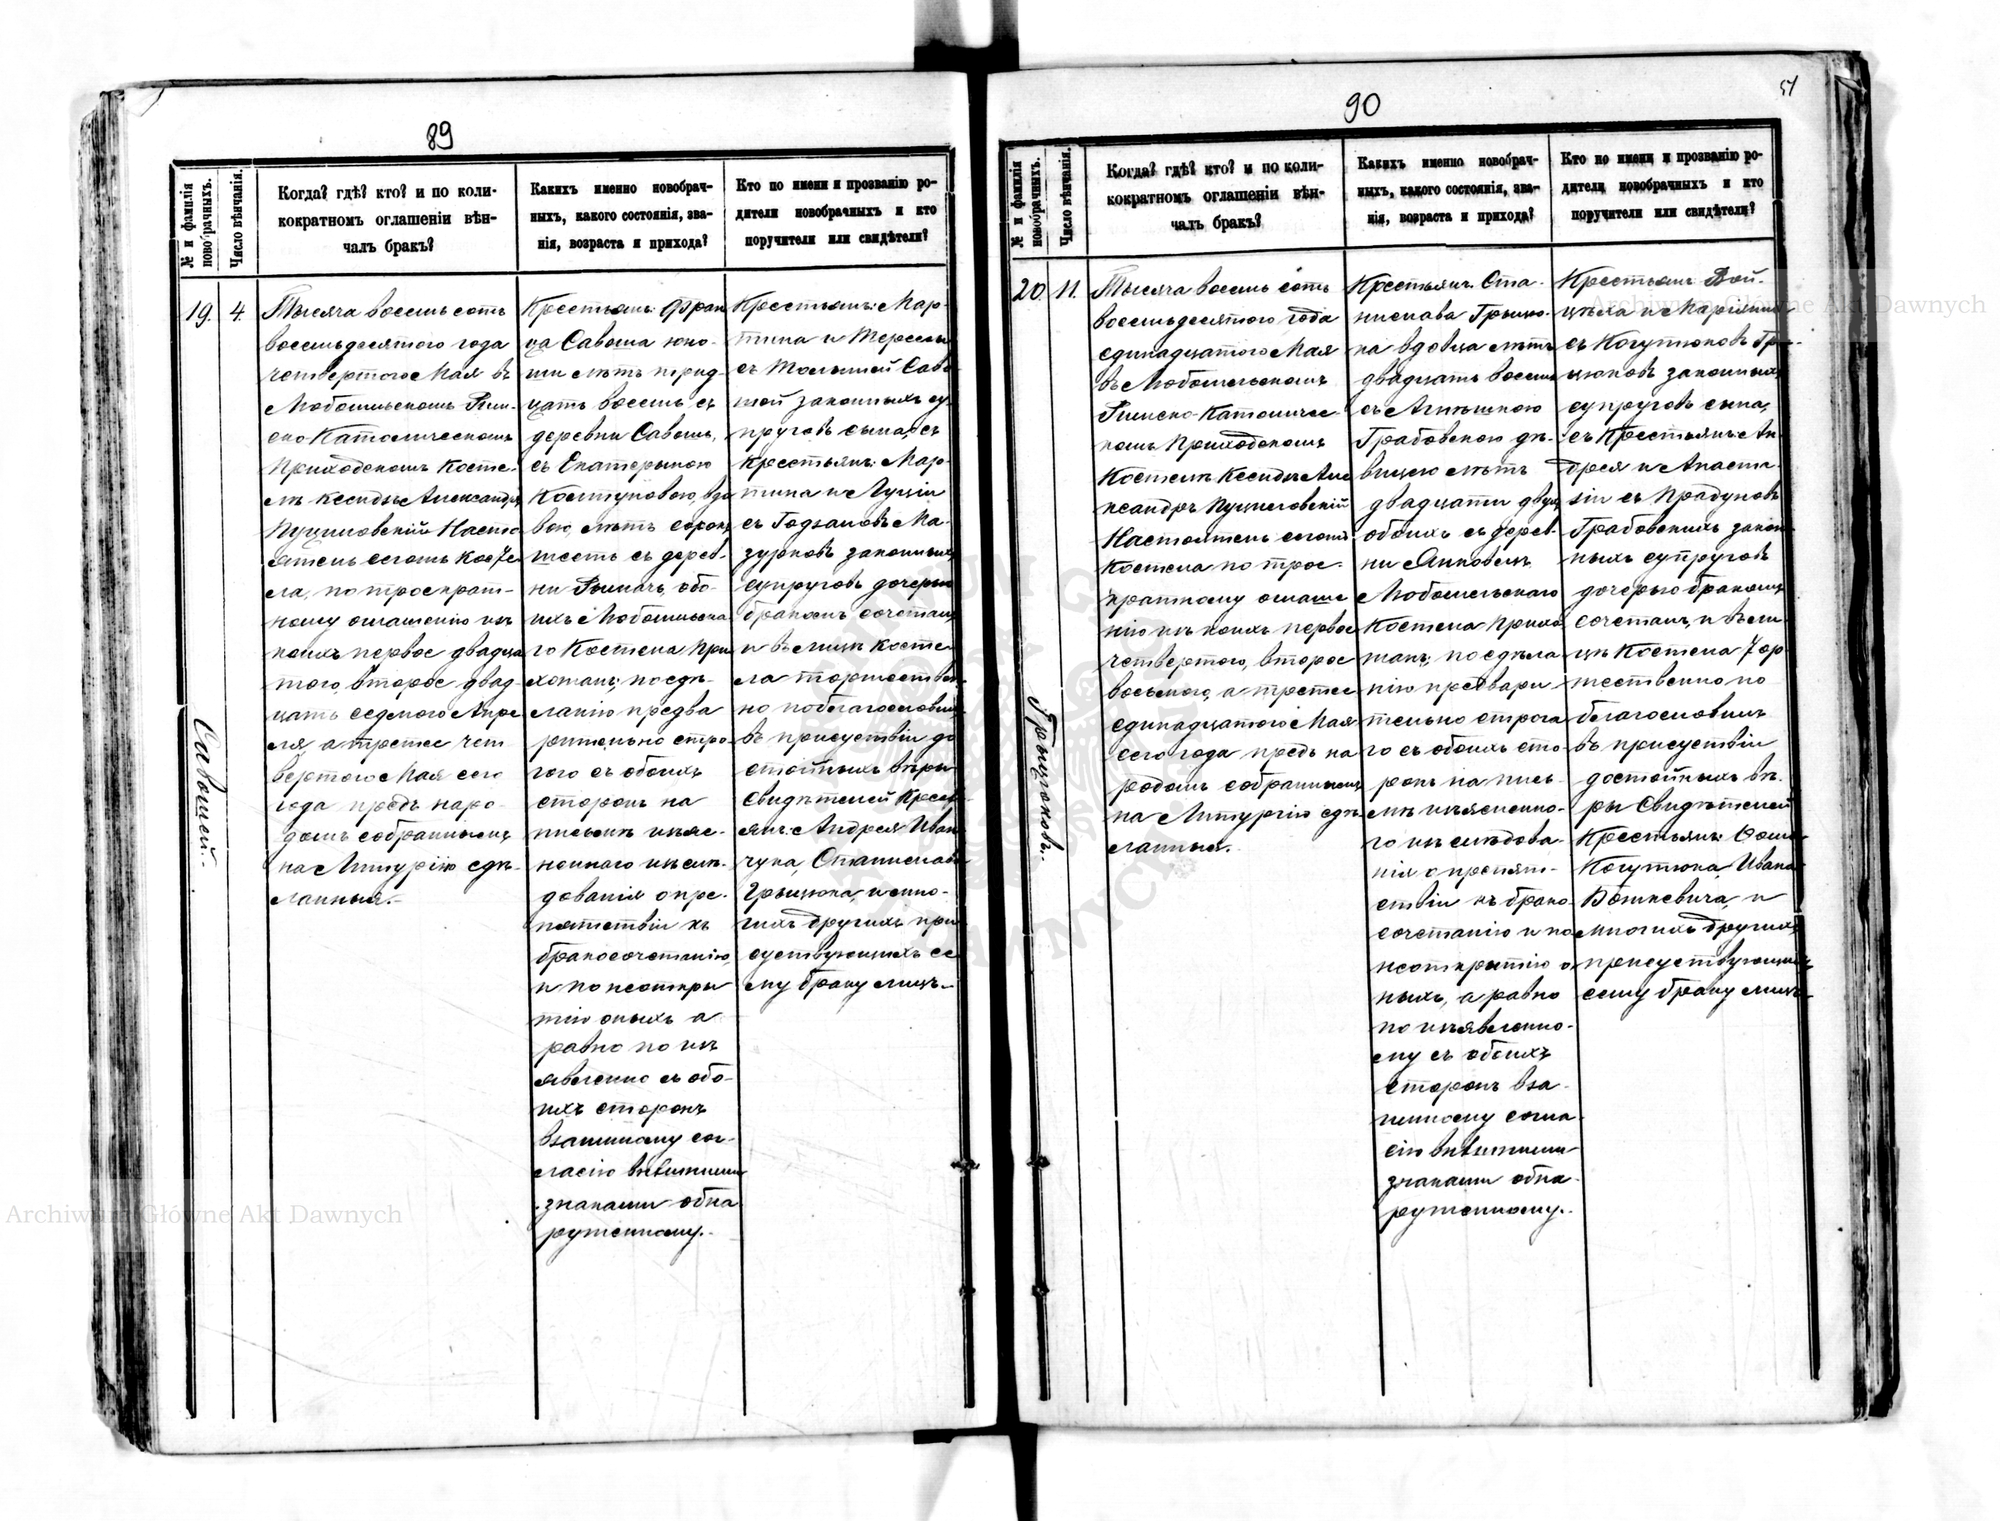 89
№ и фамилія новобрачныхъ.
Число вѣнчанія.
Когда? гдѣ? кто? и по коли-
кократномъ оглашеніи вѣн-
чалъ бракъ?
Какихъ именно новобрач-
ныхъ, какого состоянія, зва-
нія, возраста и прихода?
Кто по имени и прозванію ро-
дители новобрачныхъ и кто
поручители или свидѣтели?
19.
Савошей.
4.
Тысяча восемь сотъ
восемьдесятого года
четвертого Мая въ
Любошельскомъ Рим-
ско Католическомъ
Приходскомъ Косте-
лѣ Ксендзъ Александръ
Настоя
ятель сего Косте
ла, по троекрат-
ному оглашенію изъ
коихъ первое двадца
того второе двад-
цать седмого Апре
ля а третее чет
вертого Мая сего
года предъ наро-
домъ собраннымъ
на Литургію сдѣ-
ланныя.-
Крестьян: Фран
ца Савоша юно-
ши лѣтъ трид-
цать восемь съ
деревни Савоши,
съ Екатерыною
вдо
вою, лѣтъ сорокъ
шесть съ дерев-
ни обо-
ихъ Любошельска
го Костела При
хожан; по сдѣ-
ланію предва
рительно стро-
гого съ обоихъ
сторон на
письмѣ изъяс-
ненного изслѣ-
дованія о пре-
пятствіи къ
бракосочетанію,
и по неоткры
тію оныхъ а
равно по изъ
явленно съ обо-
ихъ сторонъ
взаимному сог-
ласію внѣшними
знаками обна
руженному.-
Крестьянъ: Мар-
тина и Тересы
съ Сав
шей законныхъ су-
пруговъ сына, съ
Крестьян: Мар-
тина и Луціи
съ Ма-
зурковъ законныхъ
супруговъ дочерью
бракомъ сочеталъ
и въ лицѣ Косте-
ла торжествен-
но поблагословилъ
въ присутствіи до
стойныхъ вѣры
Свидѣтелей Крест
янъ: Андрея Иван
чука, Станислава
Грыцюка, и мно-
гихъ другихъ при
сутствующихъ се
му браку лицъ.-
90
51
№ и фамилія новобрачныхъ.
Число вѣнчанія.
Когда? гдѣ? кто? и по коли-
кократномъ оглашеніи вѣн-
чалъ бракъ?
Какихъ именно новобрач-
ныхъ, какого состоянія, зва-
нія, возраста и прихода?
Кто по имени и прозванію ро-
дители новобрачныхъ и кто
поручители или свидѣтели?
20
Грыцюковъ.
11.
Тысяча восемь сотъ
восемьдесятого года
единадцатого Мая
въ Любошельскомъ
Римско-Католичес-
комъ Приходскомъ
Костелѣ Ксендзъ Але
ксандръ
Настоятель сего
Костела по трое-
кратному оглаше
нію изъ коихъ первое
четвертого, второе
восьмого, а третее
единадцатого Мая
сего года предъ на
родомъ собраннымъ
на Литургію сдѣ-
ланныя.
Крестьян: Ста-
нислава Грыцю-
ка вдовца лѣтъ
двадцать восемь
съ
Грабовскою дѣ-
вицею лѣтъ
двадцати двухъ
обоихъ съ дерев-
ни
Любошельскаго
Костела прихо
жанъ; по сдѣла
нію предвари-
тельно строга
го съ обоихъ сто
ронъ на пись-
мѣ изъясненно-
го изслѣдова-
нія о препят-
ствіи къ брако-
сочетанію и по
неоткрытію о
ныхъ, а равно
по изъявленно-
му съ обоихъ
сторонъ вза-
имному согла-
сію внѣшними
знаками обна-
руженному.-
Крестьян: Вой-
цѣха и Маріянны
съ Когутюковъ Гры-
цюковъ законныхъ
супруговъ сына,
съ Крестьянъ Ан-
дрея и Анаста-
зіи съ
Грабовскихъ закон-
ныхъ супруговъ
дочерью бракомъ
сочеталъ, и въ ли-
цѣ Костела Тор-
жественно по
благословилъ
въ присутствіи
достойныхъ вѣ-
ры Свидѣтелей
Крестьян: Фомы
Когутюка, Ивана
и
многихъ другихъ
присутствующихъ
сему браку лицъ.-
Archiwum Główne Akt Dawnych
Archiwum Główne Akt Dawnych